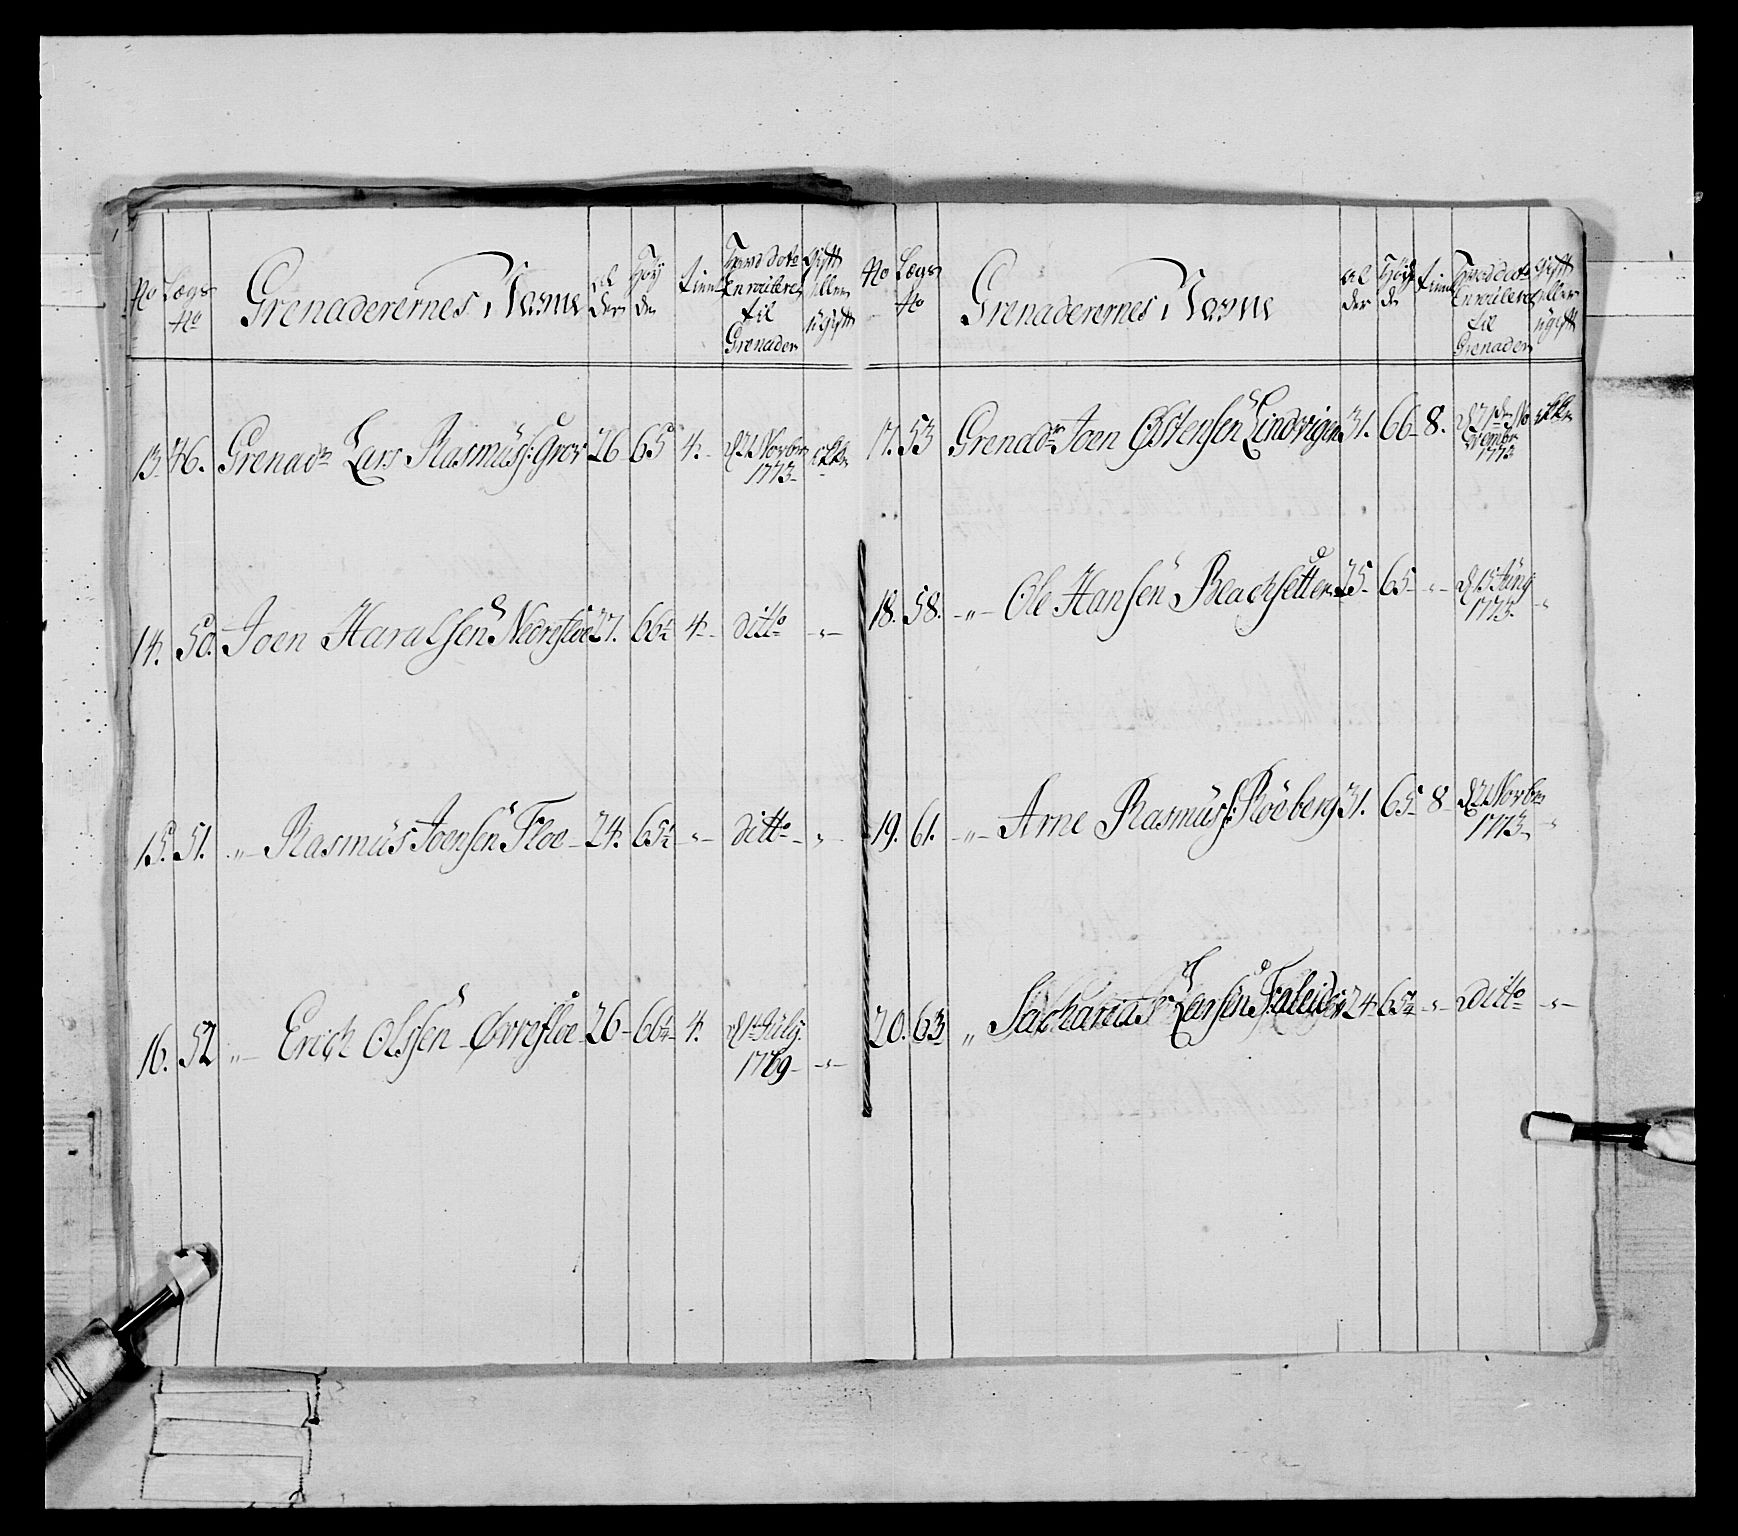 No Lægs No Grenaderernes Nafne Al der Høy de tient Hvad dato Enroileret til Grenader Gift eller ugift
13. 46. Grenadr Lars Rasmüss: Grov 26 65 4. d 21 Novbr 1773 ikke
14. 50. Joen Haralsen Nedrefloe 27. 66½ 4. ditto „
15. 51. „ Rasmüs Joensen Floe 24. 65½ „ ditto „
16. 52 „ Erich Olssen Øvrefloe 26 66½ 4. d 1 Julij 1769 „
No Lægs No Grenaderernes Nafne Al der Høy de tient Hvad dato Enroileret til Grenader Gift eller ugift
17. 53 Grenadr Joen Østensen Lindvigen 31. 66 8. 1773 ikke
18. 58. „ Ole Hansen 25 65 „ d 15 Junij 1773. „
19. 61. „ Arne Rasmüss: Röeberg 31. 65 8 d 21 Novbr 1773 „
20. 63 „ Sacharias Larsen Faleide 24 65½ „ Ditto „